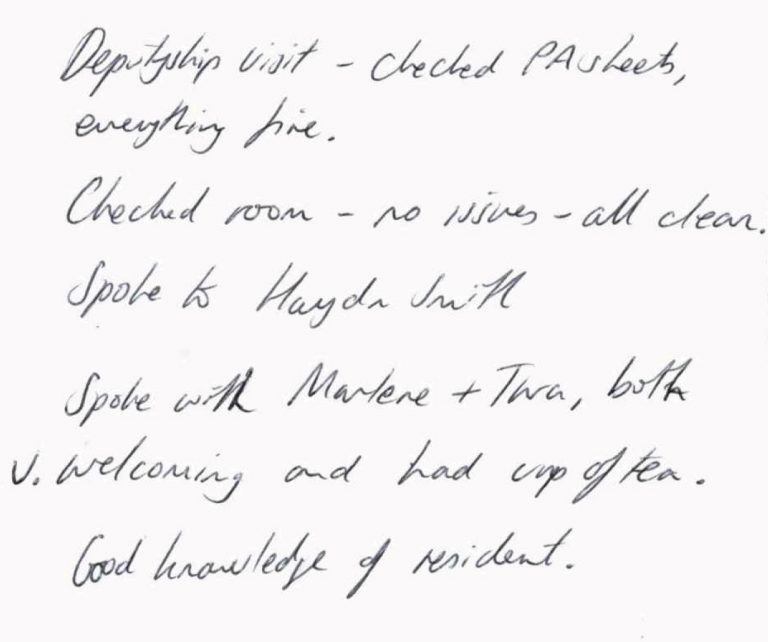 Deputyship visit - checked PA sheets,
everything fine.
Checked room - no issues - all clear.
Spoke to Haydn Smith
Spoke with Marlene + , both
v. welcoming and had cup of tea.
Good knowledge of resident.